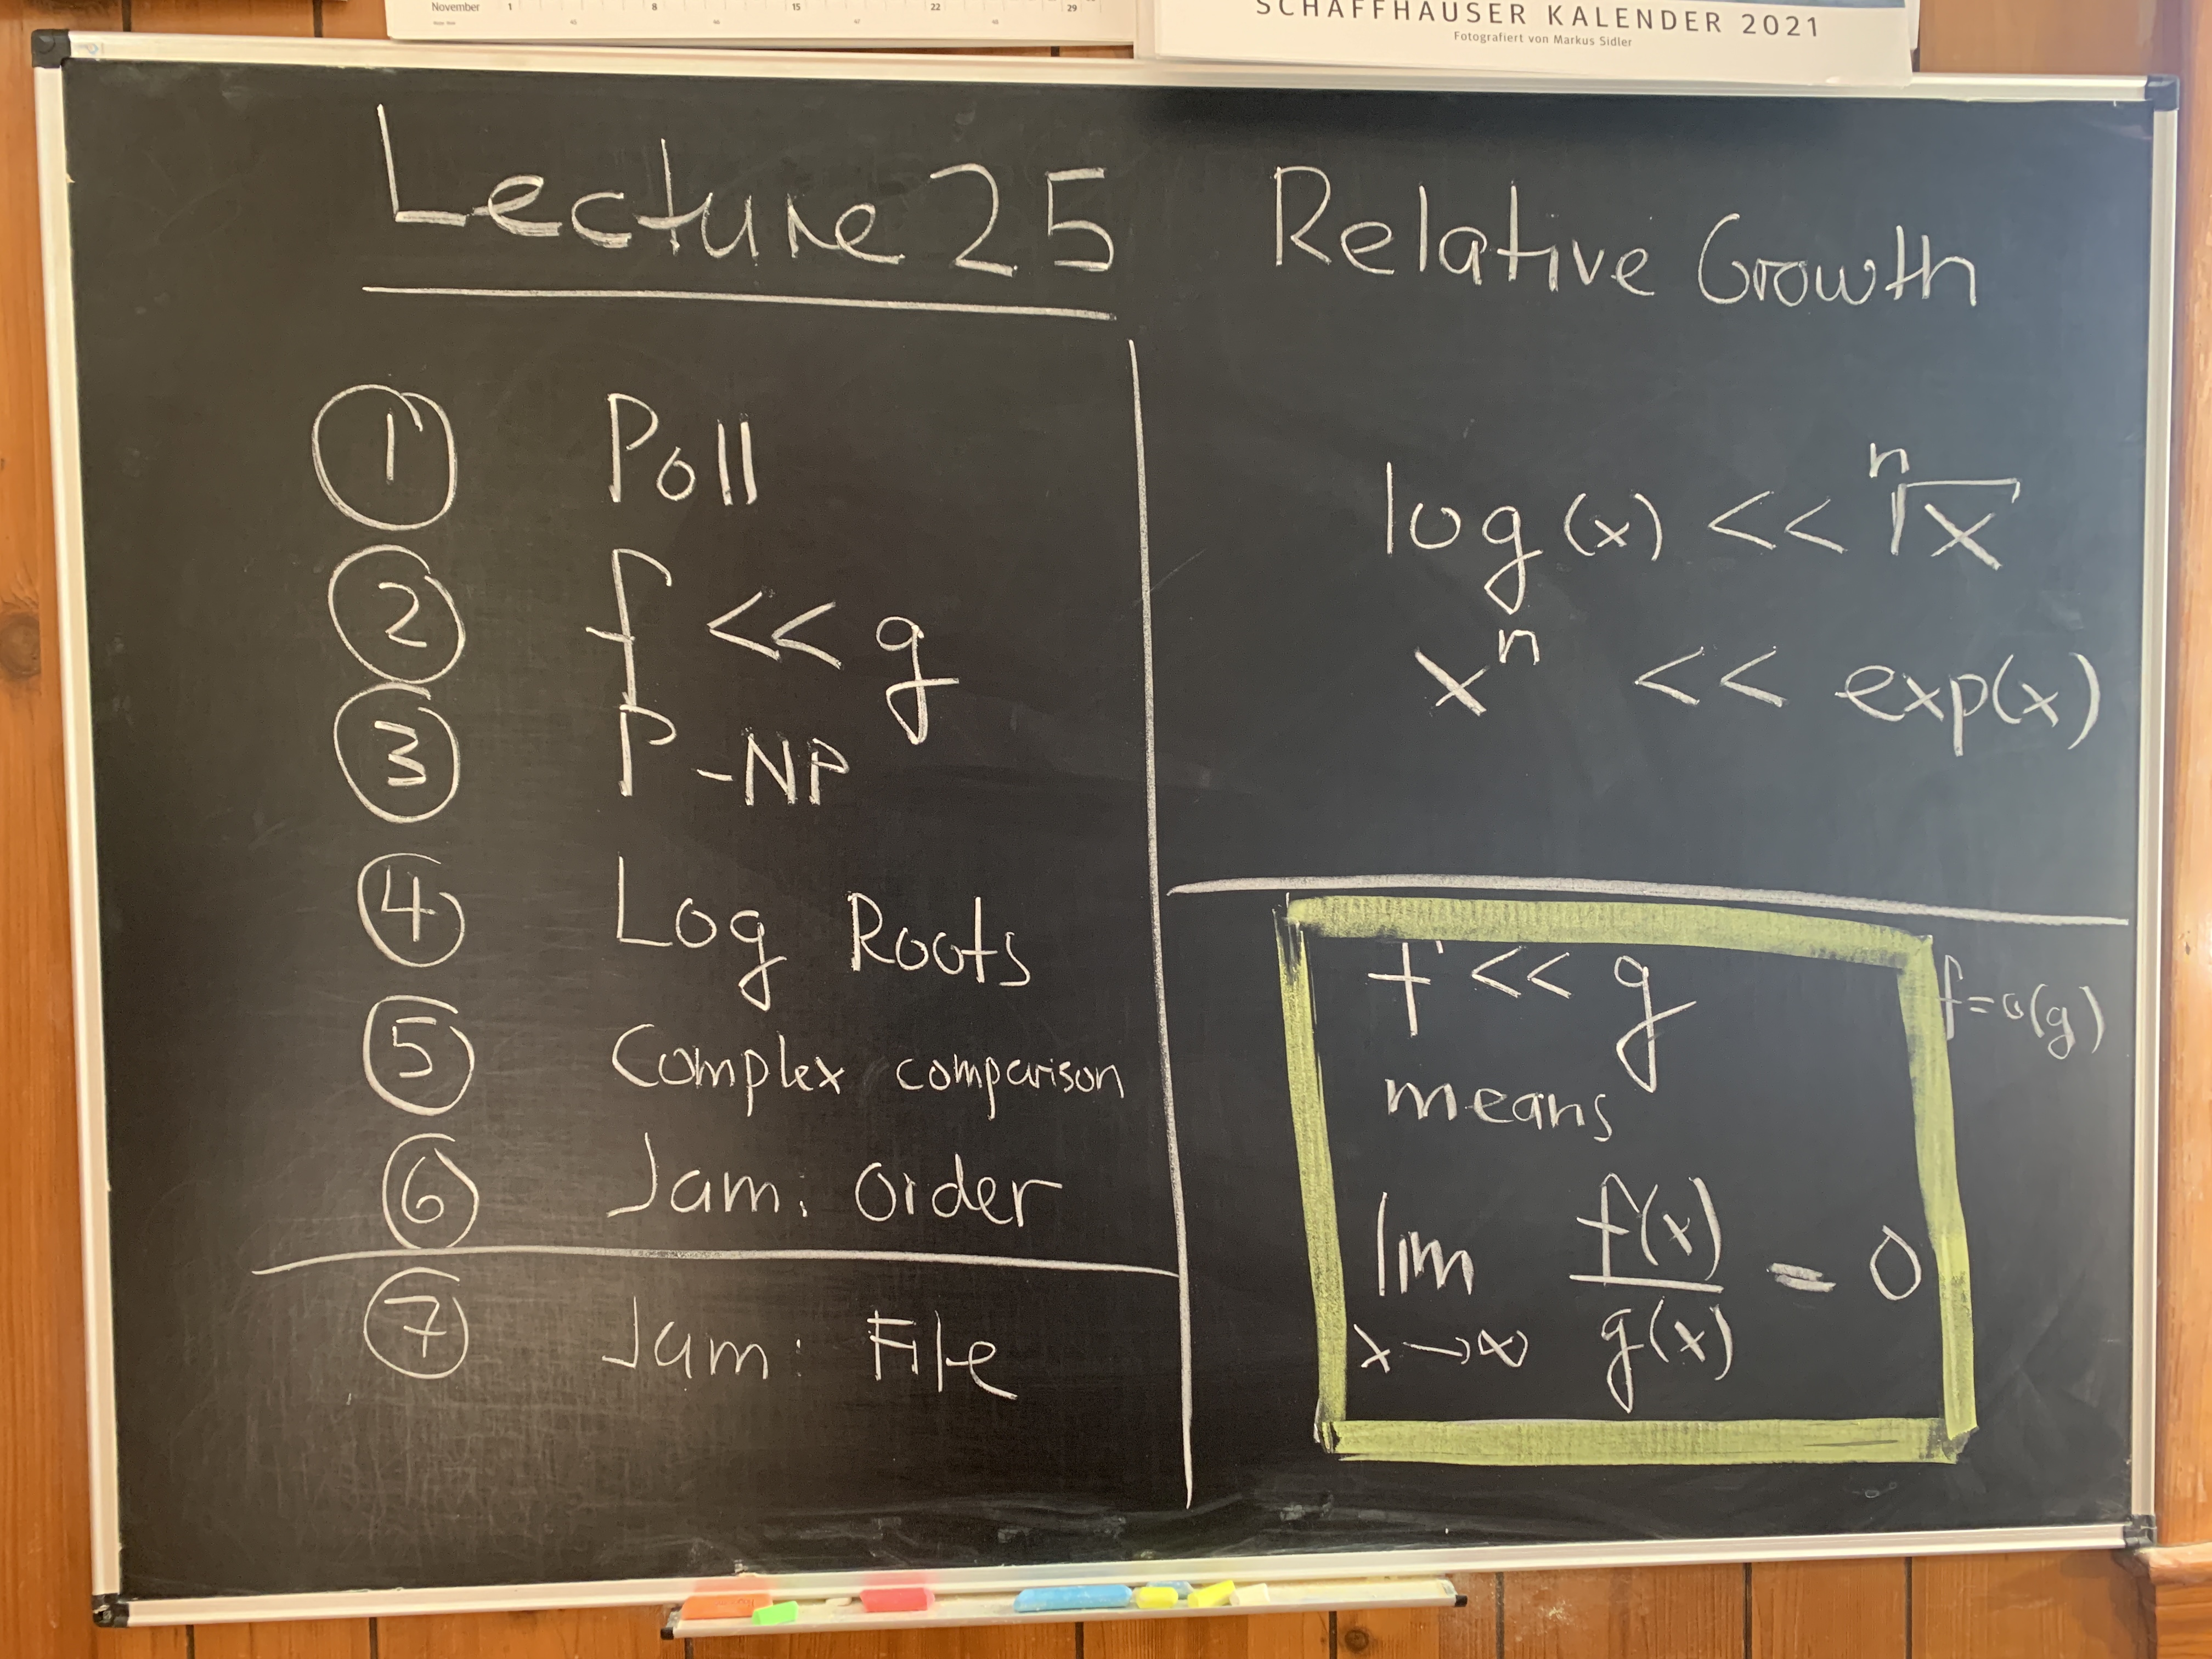 November 1 8 15 22 29
SCHAFFHAUSER KALENDER 2021
Fotografiert von Markus Sidler
Lecture 25
① Poll
② f << g
③ P-NP
④ Log Roots
⑤ Complex comparison
⑥ Jam: Order
⑦ Jam: File
Relative Growth
log(x) << ⁿ√x
xⁿ << exp(x)
f << g
f = o(g)
means
lim f(x)/g(x) = 0
x→∞